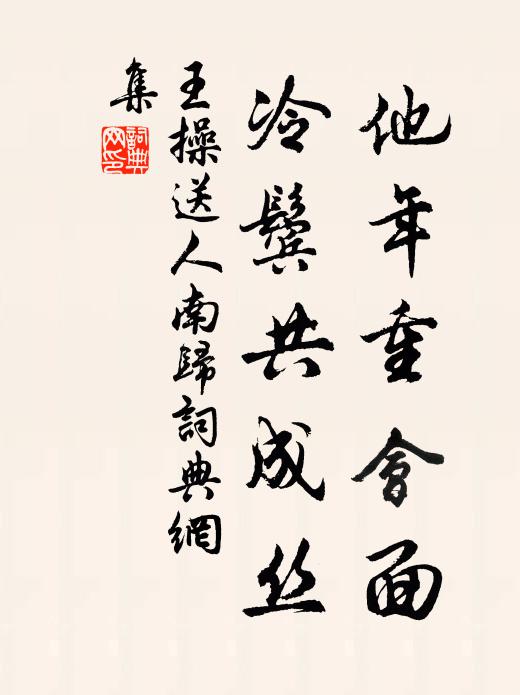 他年重會面
冷鬢共成丝
王操送人南歸詞典網
集
詞典
网印